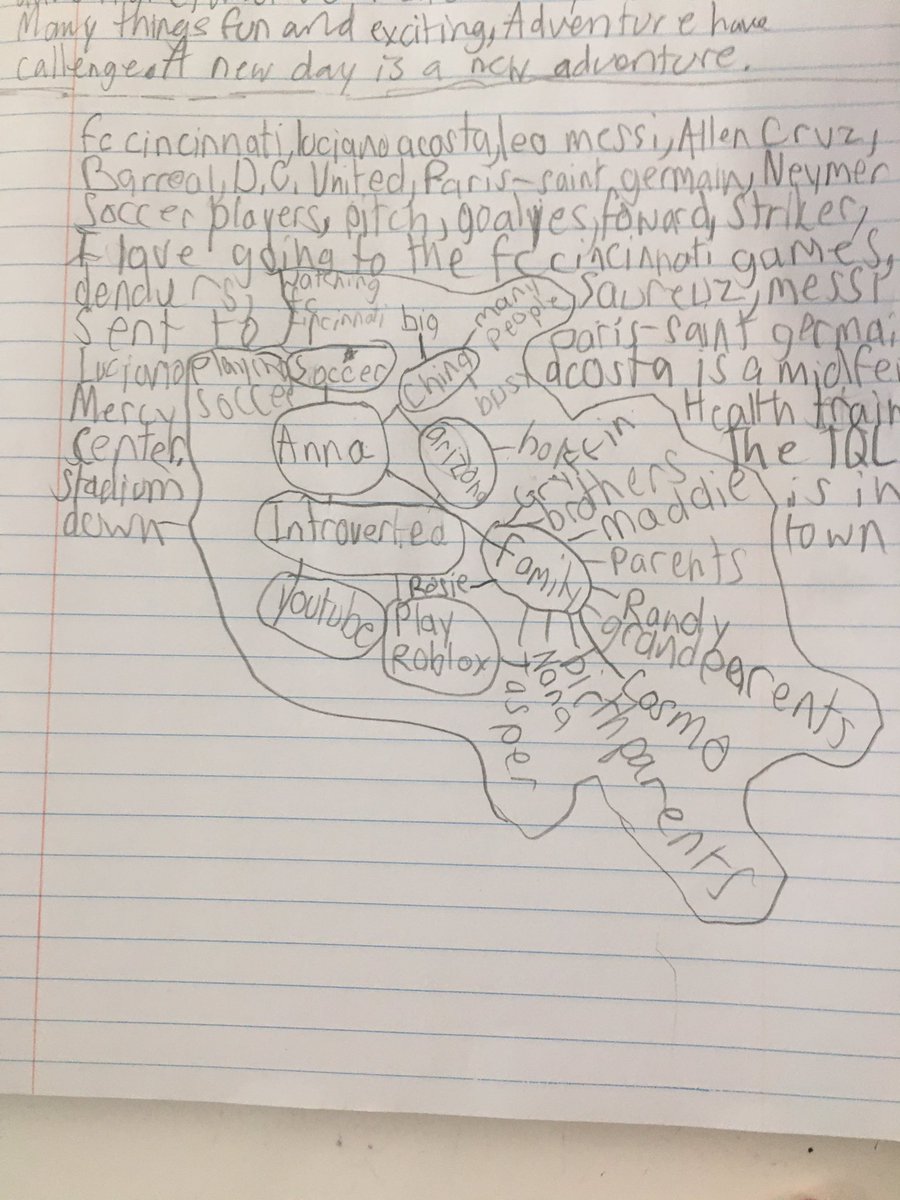 Many things fun and exciting, Adventure have
callenge. A new day is a new adventure.
fc cincinnati, luciano acosta, leo messi, Allen Cruz,
Barreal, D.C. United, Paris-saint germain, Neymer
Soccer players, pitch, goalyes, foward, Striker,
I love going to the fc cincinnati games,
Watching
fc
cincinnati
big
many
people
Saureuz, messi
Sent to
paris-saint germai
Luciano
playing
soccer
Soccer
China
busy
acosta is a midfei
Mercy
Health train
Center,
Anna
arizona
hot
The TQL
Stadium
is in
down
town
Introverted
family
brothers
maddie
parents
Rosie
Randy
grandparents
Youtube
Play
Roblox
Jasper
Nona
birthparents
Cosmo